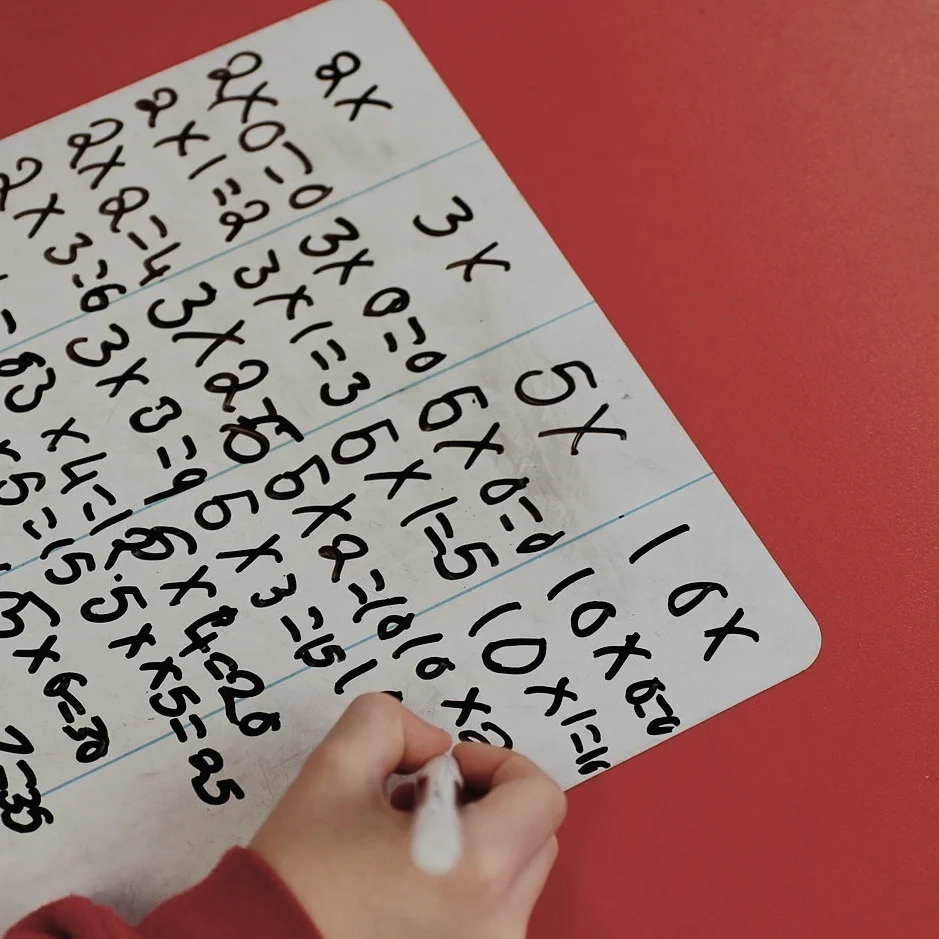 2x
2x0=0
2x1=2
2x2=4
2x3=6
=8
3x
3x0=0
3x1=3
3x2=6
3x3=9
3x4=12
x5=15
5x
5x0=0
5x1=5
5x2=10
5x3=15
5x4=20
5xx5=25
5x6=30
7=35
10x
10x0=0
10x1=10
10x2
1